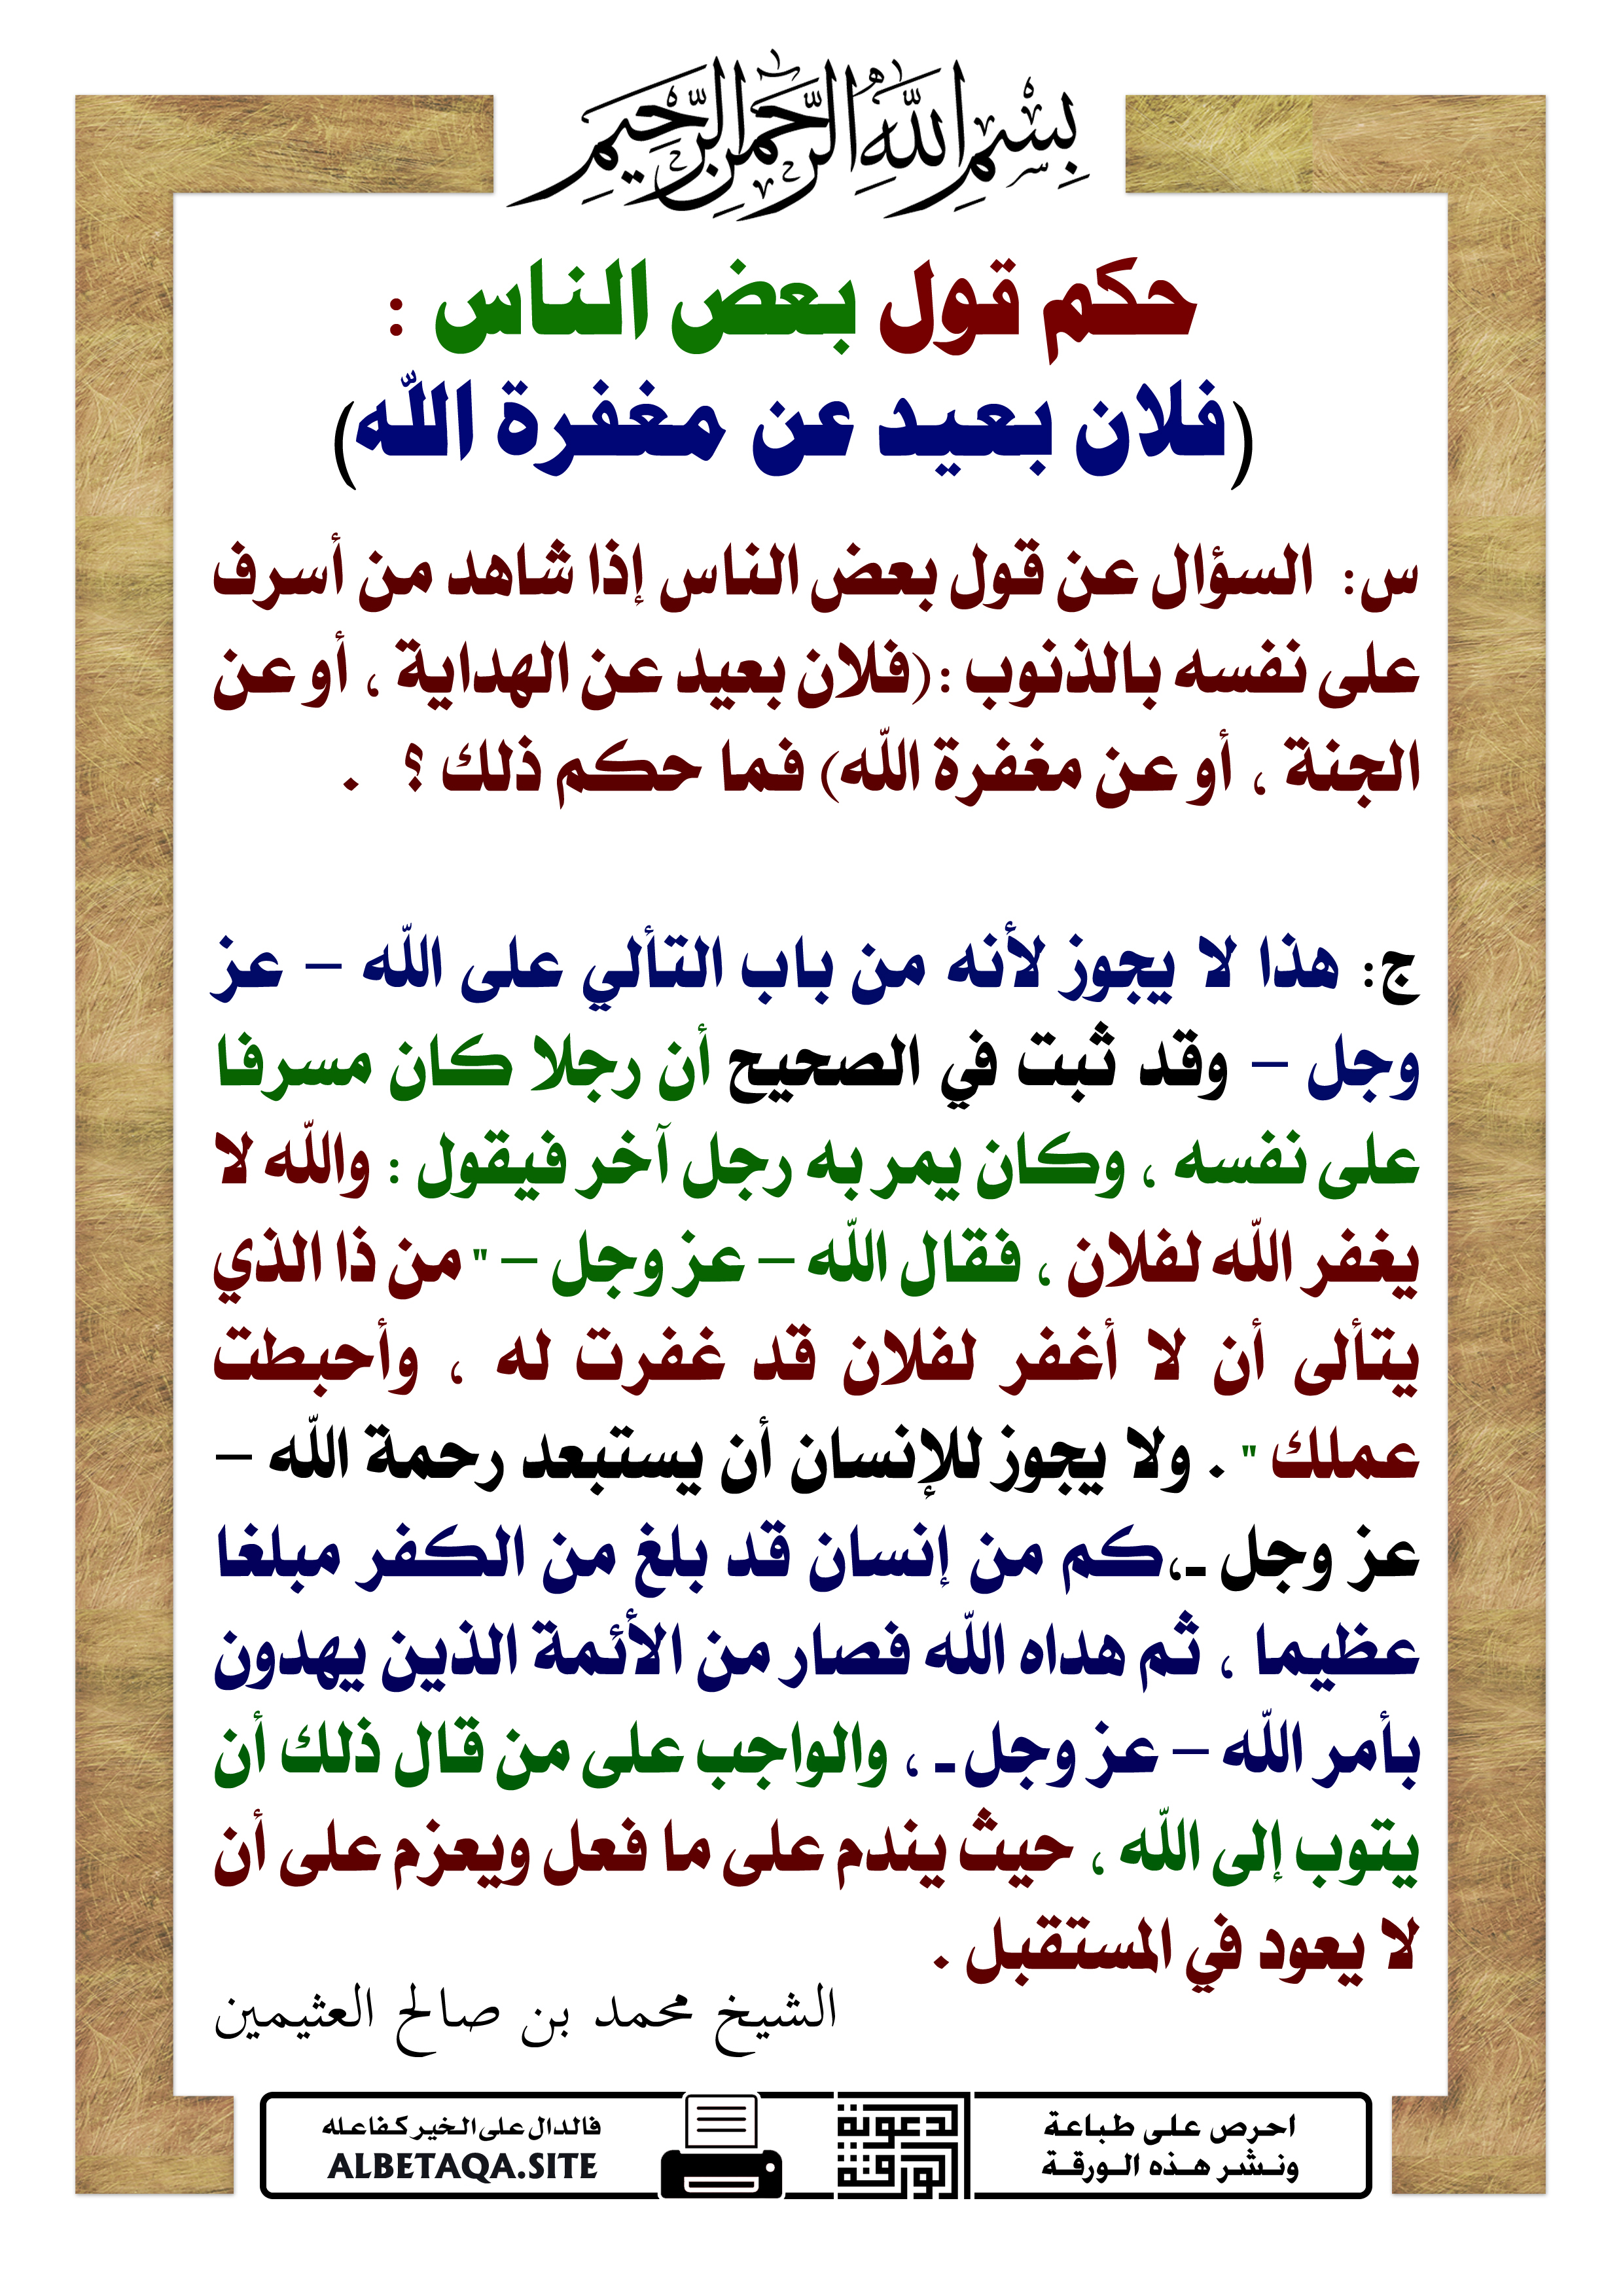 بِسْمِ اللَّهِ الرَّحْمَٰنِ الرَّحِيمِ
حكم قول بعض الناس :
(فلان بعيد عن مغفرة الله)
س: السؤال عن قول بعض الناس إذا شاهد من أسرف
على نفسه بالذنوب :(فلان بعيد عن الهداية ، أو عن
الجنة ، أو عن مغفرة الله) فما حكم ذلك ؟ .
ج: هذا لا يجوز لأنه من باب التألي على الله – عز
وجل – وقد ثبت في الصحيح أن رجلا كان مسرفا
على نفسه ، وكان يمر به رجل آخر فيقول : والله لا
يغفر الله لفلان ، فقال الله – عز وجل – " من ذا الذي
يتألى أن لا أغفر لفلان قد غفرت له ، وأحبطت
عملك " . ولا يجوز للإنسان أن يستبعد رحمة الله –
عز وجل ـ،كم من إنسان قد بلغ من الكفر مبلغا
عظيما ، ثم هداه الله فصار من الأئمة الذين يهدون
بأمر الله – عز وجل ـ ، والواجب على من قال ذلك أن
يتوب إلى الله ، حيث يندم على ما فعل ويعزم على أن
لا يعود في المستقبل .
الشيخ محمد بن صالح العثيمين
احرص على طباعة
ونشر هذه الورقة
الورقة
الدعوية
فالدال على الخير كفاعله
ALBETAQA.SITE